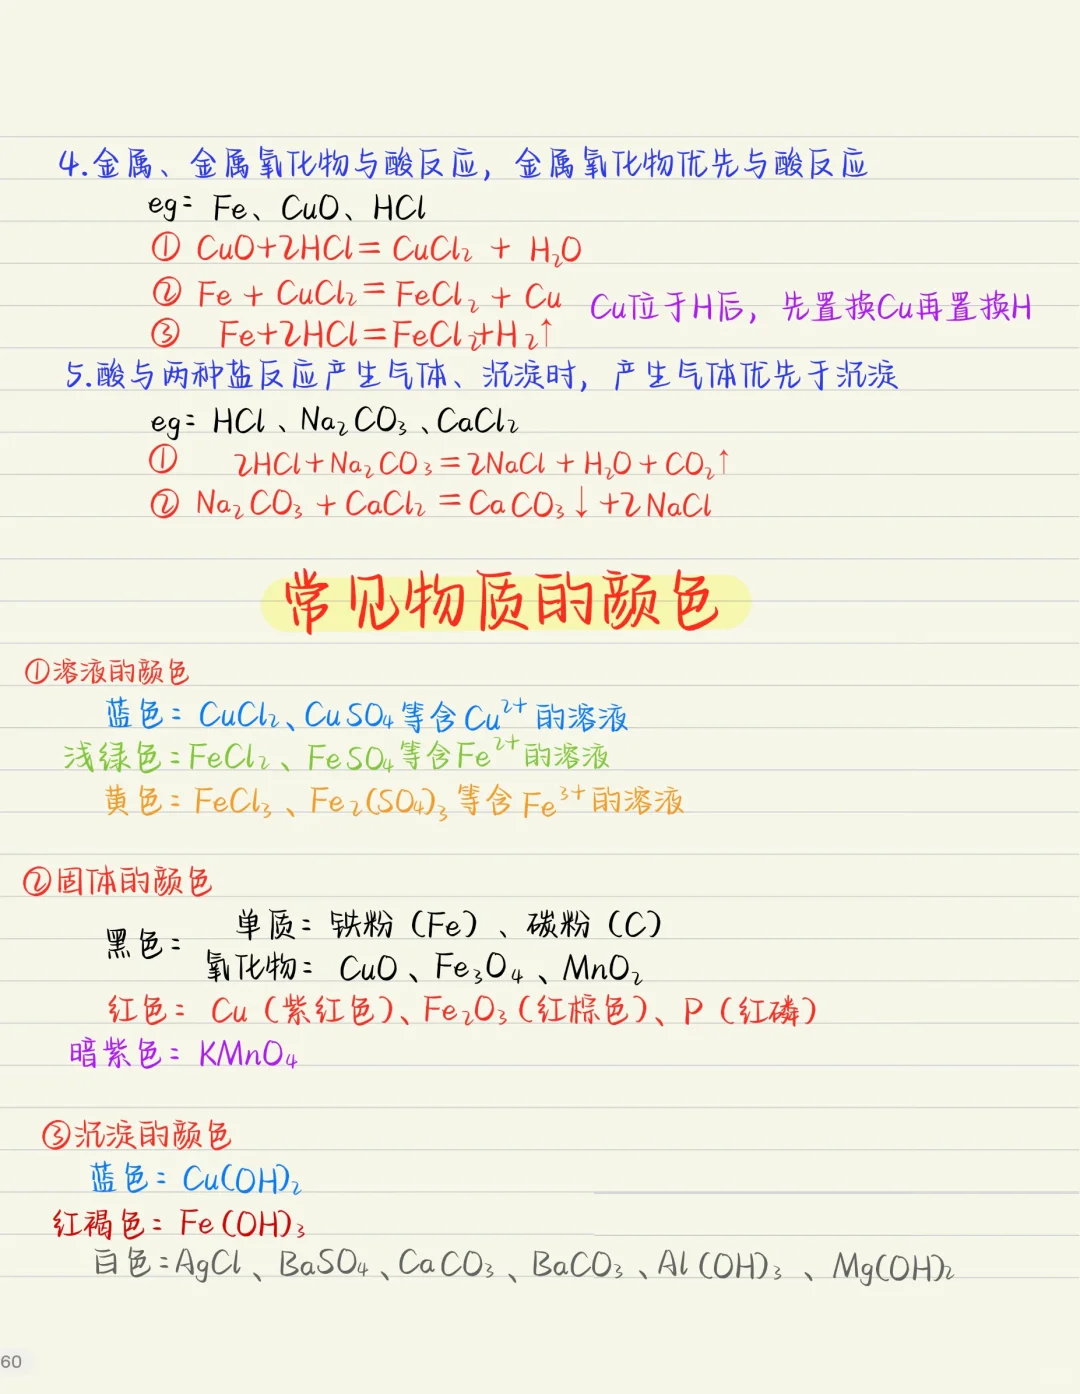 4.金属、金属氧化物与酸反应，金属氧化物优先与酸反应
eg: Fe、CuO、HCl
① CuO+2HCl=CuCl₂ + H₂O
② Fe + CuCl₂=FeCl₂ + Cu
Cu位于H后，先置换Cu再置换H
③ Fe+2HCl=FeCl₂+H₂↑
5.酸与两种盐反应产生气体、沉淀时，产生气体优先于沉淀
eg: HCl、Na₂CO₃、CaCl₂
① 2HCl+Na₂CO₃=2NaCl+H₂O+CO₂↑
② Na₂CO₃ + CaCl₂ =CaCO₃↓+2NaCl
常见物质的颜色
①溶液的颜色
蓝色: CuCl₂、CuSO₄等含Cu²⁺的溶液
浅绿色:FeCl₂、FeSO₄等含Fe²⁺的溶液
黄色: FeCl₃、Fe₂(SO₄)₃等含Fe³⁺的溶液
②固体的颜色
黑色: 单质: 铁粉（Fe）、碳粉（C）
氧化物: CuO、Fe₃O₄、MnO₂
红色: Cu（紫红色）、Fe₂O₃（红棕色）、P（红磷）
暗紫色: KMnO₄
③沉淀的颜色
蓝色: Cu(OH)₂
红褐色: Fe(OH)₃
白色:AgCl、BaSO₄、CaCO₃、BaCO₃、Al(OH)₃、Mg(OH)₂
60